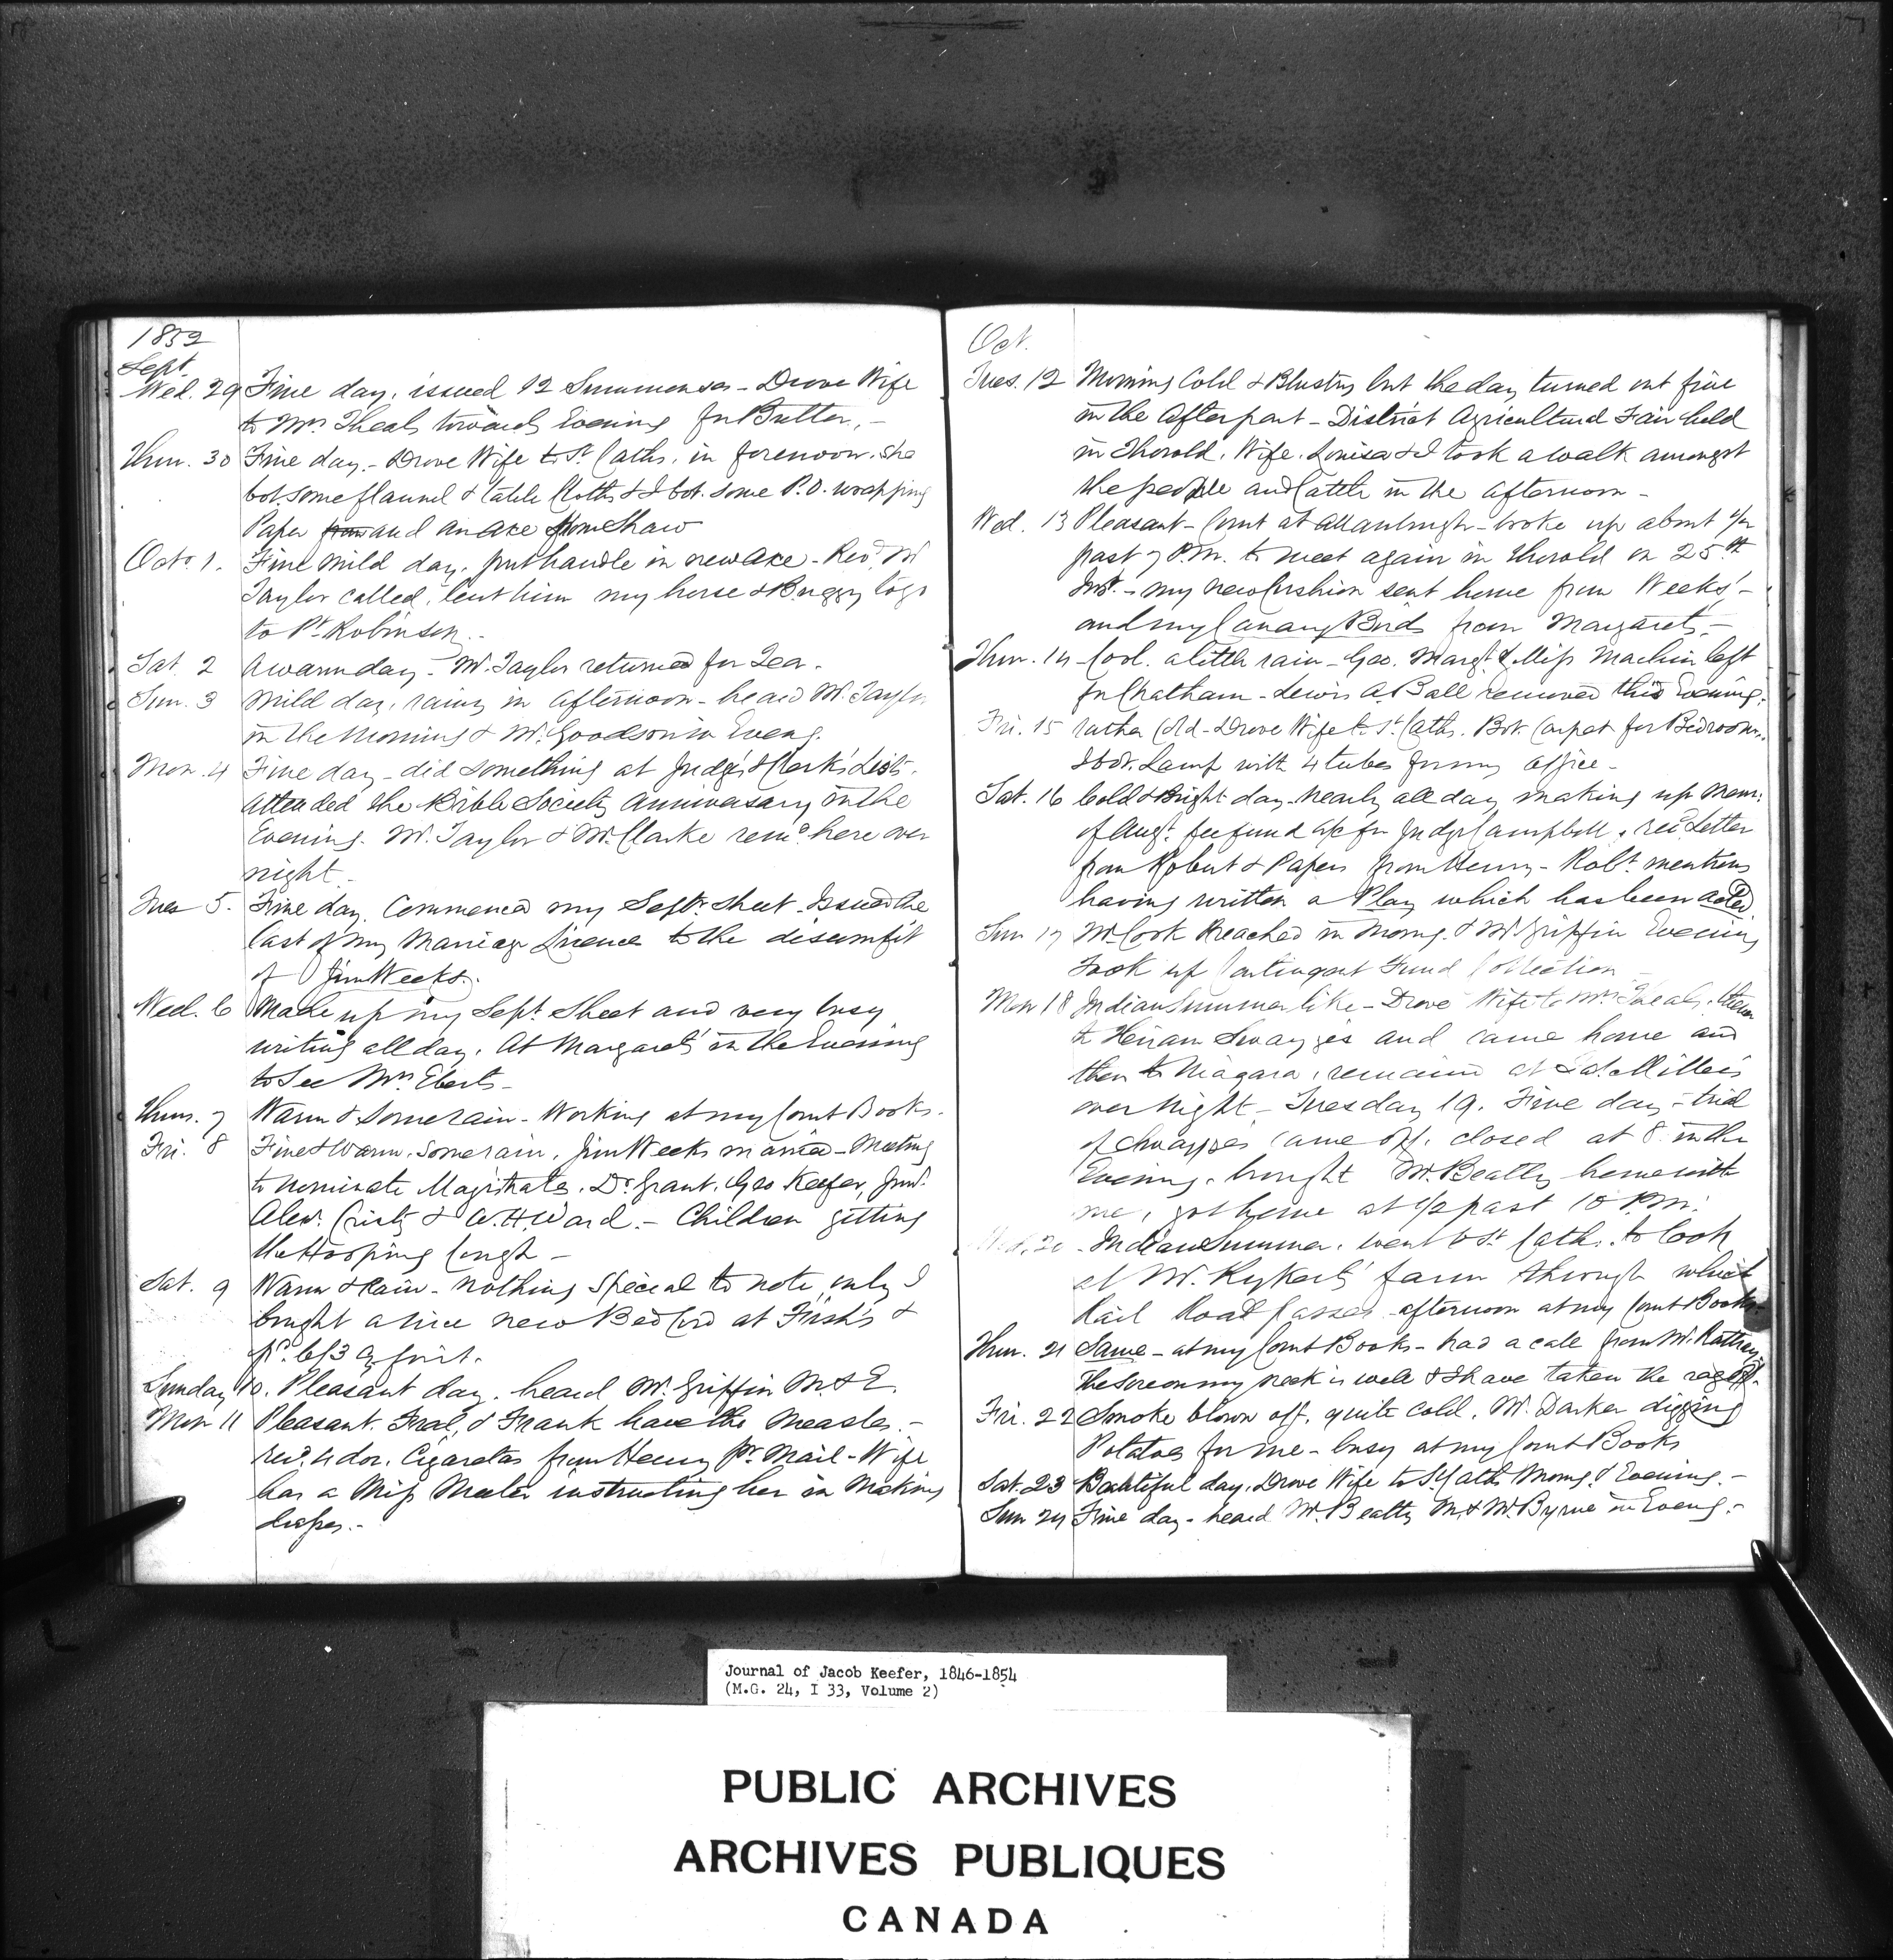 1852
Sept.
Wed. 29 Fine day, issued 12 Summonses - Drove Wife
to Mrs Theals towards Evening for Butter, -
Thur. 30 Fine day. - Drove Wife to St Caths. in forenoon. She
bot. some flannel & table Cloths & I bot. some P.O. wrapping
Paper from and an axe from Shaw
Octr. 1. Fine mild day. put handle in new axe - Revd. Mr
Taylor called, lent him my horse & Buggy to go
to Pt Robinson. -
Sat. 2 A warm day - Mr. Taylor returned for Tea -
Sun. 3 Mild day, rainy in afternoon - heard Mr. Taylor
in the Morning & Mr. Goodson in Eveng.
Mon. 4 Fine day - did something at Judge's & Clerk's Lists.
Attended the Bible Society Anniversary in the
Evening. Mr. Taylor & Mr. Clarke remd. here over
night -
Tues 5. Fine day. Commenced my Septr. Sheet. Issued the
last of my Marriage Licence to the discomfit
of Jim Weeks. -
Wed. 6 Made up my Sept. Sheet and very busy
writing all day. At Margarets' in the Evening
to See Mrs. Eberts -
Thurs. 7 Warm & Some rain - Working at my Court Books.
Fri. 8 Fine & Warm. Some rain. Jim Weeks married - Meeting
to nominate Magistrates. Dr. Grant, Geo Keefer, Junr.
Alexr. Christy & W. H. Ward. - Children getting
the Hooping Cough -
Sat. 9 Warm & Rain - nothing Special to note, only I
bought a nice new Bed Cord at Fish's &
pd. 6/3 for it.
Sunday 10. Pleasant day. heard Mr. Griffin M & E.
Mon 11 Pleasant. Fred, & Frank have the Measles. -
recd. 4 doz. Cigarettas from Henry pr. Mail - Wife
has a Miss instructing her in Making
dresses. -
Oct.
Tues. 12 Morning Cold & Blustry but the day turned out fine
in the Afterpart - District Agricultural Fair held
in Thorold. Wife, Louisa & I took a walk amongst
the people and Cattle in the afternoon -
Wed. 13 Pleasant - Court at Allanburgh - broke up about 1/2
past 7 P.M. to meet again in Thorold on 25th
Inst. - my new Cushion sent home from Weeks' -
and my Canary Birds from Margarets. -
Thur. 14 Cool. a little rain - Geo. Margt. & Miss Machin left
for Chatham - Lewis A. Ball removed this Evening.
Fri. 15 rather Cold - Drove Wife to St. Caths. Bot. Carpet for Bedrooms.
& bot. Lamp with 4 tubes for my office -
Sat. 16 Cold & Bright day. Nearly all day making up Mem:
of Augt. fee fund a/c for Judge Campbell. recd. Letter
from Robert & Papers from Henry - Robt. mentions
having written a Play which has been acted.
Sun 17 Mr. Cook Preached in Morng. & Mr. Griffin Evening
Took up Contingent Fund Collection -
Mon 18 Indian Summer like - Drove Wife to Mrs. Theals, thence
to Hiram Swayzies and came home and
then to Niagara, remained at Millers
over Night - Tuesday 19. Fine day - trial
of Swayzies came off, closed at 8 in the
Evening. brought Mr. Beatty home with
me, got home at 1/2 past 10 P.M.
Wed. 20 - Indian Summer. went to St Caths. to look
at Mr. Rykerts' farm through which
Rail Road passes - afternoon at my Court Books -
Thur. 21 Same - at my Court Books - had a call from Mr.
The Sore on my neck is well & I have taken the rag off.
Fri. 22 Smoke blown off, quite cold. Mr. Darker digging
Potatoes for me - busy at my Court Books
Sat. 23 Beautiful day. Drove Wife to St. Caths Morng. & Evening. -
Sun 24 Fine day - heard Mr. Beatty M. & Mr. Byrne in Eveng. -
Journal of Jacob Keefer, 1846-1854
(M.G. 24, I 33, Volume 2)
PUBLIC ARCHIVES
ARCHIVES PUBLIQUES
CANADA